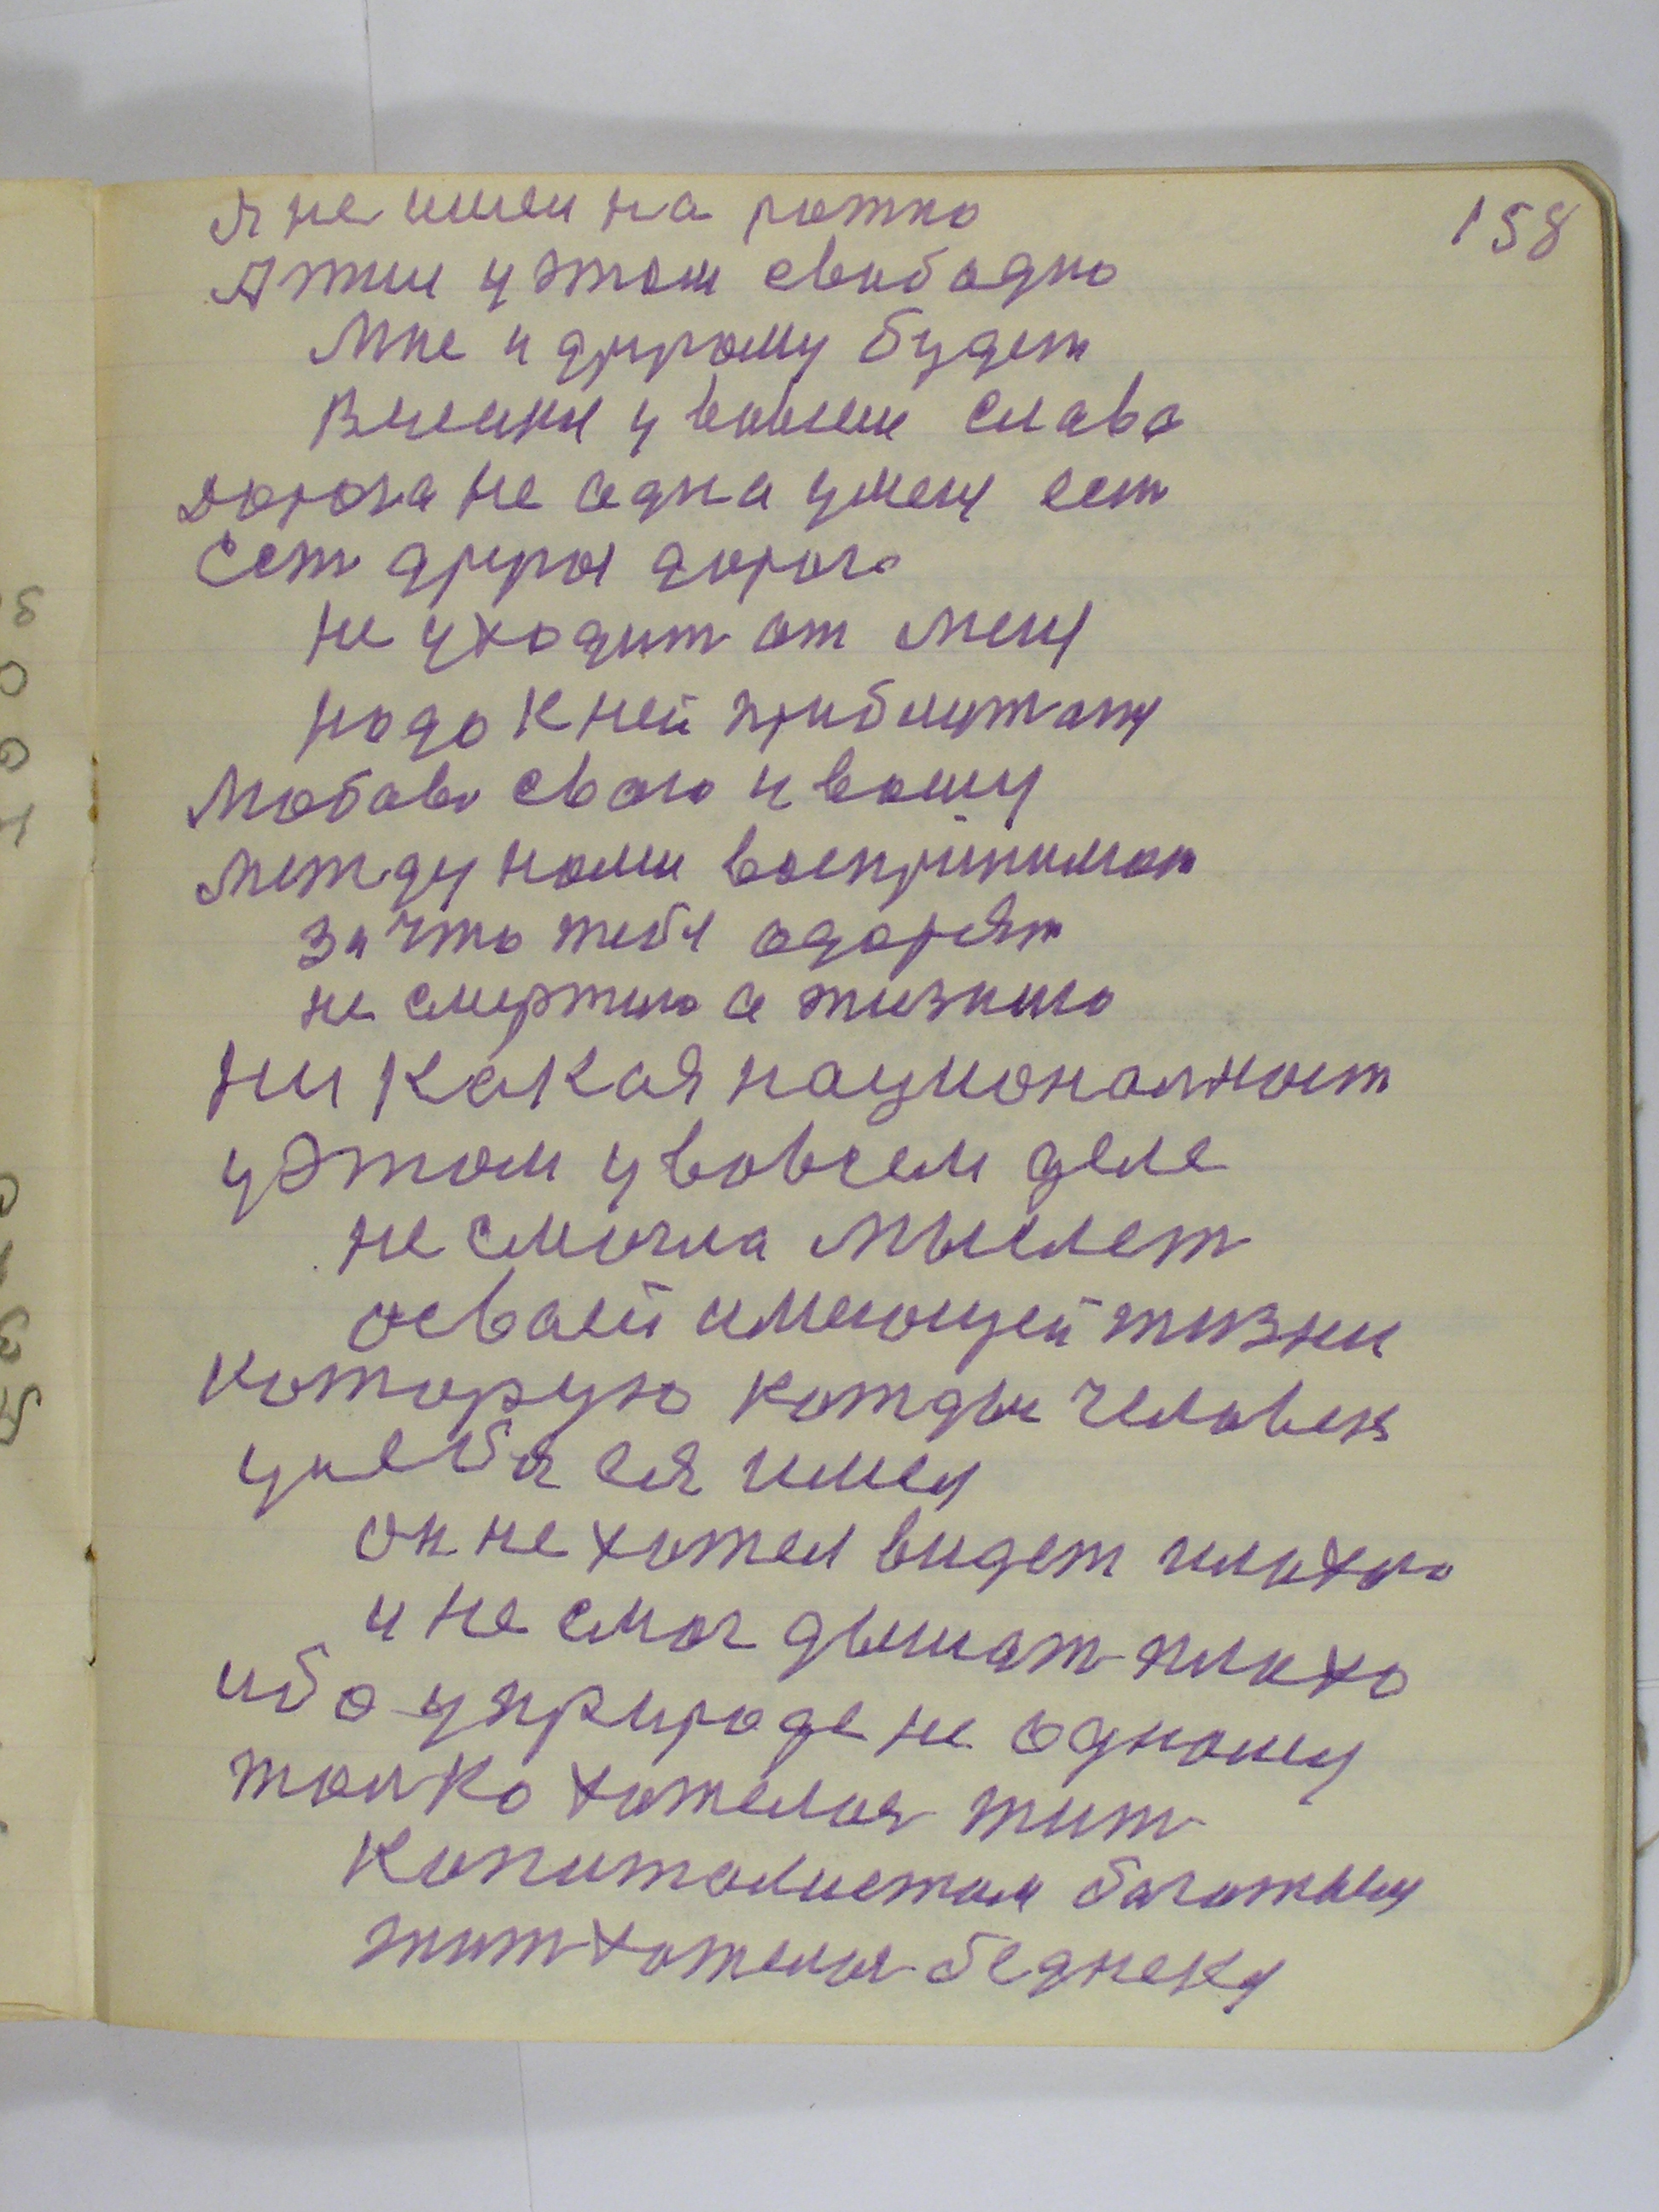 158
я не имеи на
А жил у этом свободно
Мне и другому будет
Велики у вовсем слава
дорога не одна умея ест
Ест другоя дорога
не уходит от меня
надо к ней приближатя
Любов свою и вашу
между нами воспринимат
За что тебя одарят
не смертию а жизнию
Ни какая национолност
у этом у вовсем деле
не смогла мыслет
освоей имеющей жизни
которую кождые человек
у себя ея имея
он не хотел видет плохого
и не смог дышат плохо
ибо у природе не одному
толко хотелоя жит
Копиталистам богатыму
жит хотелоя беднеку